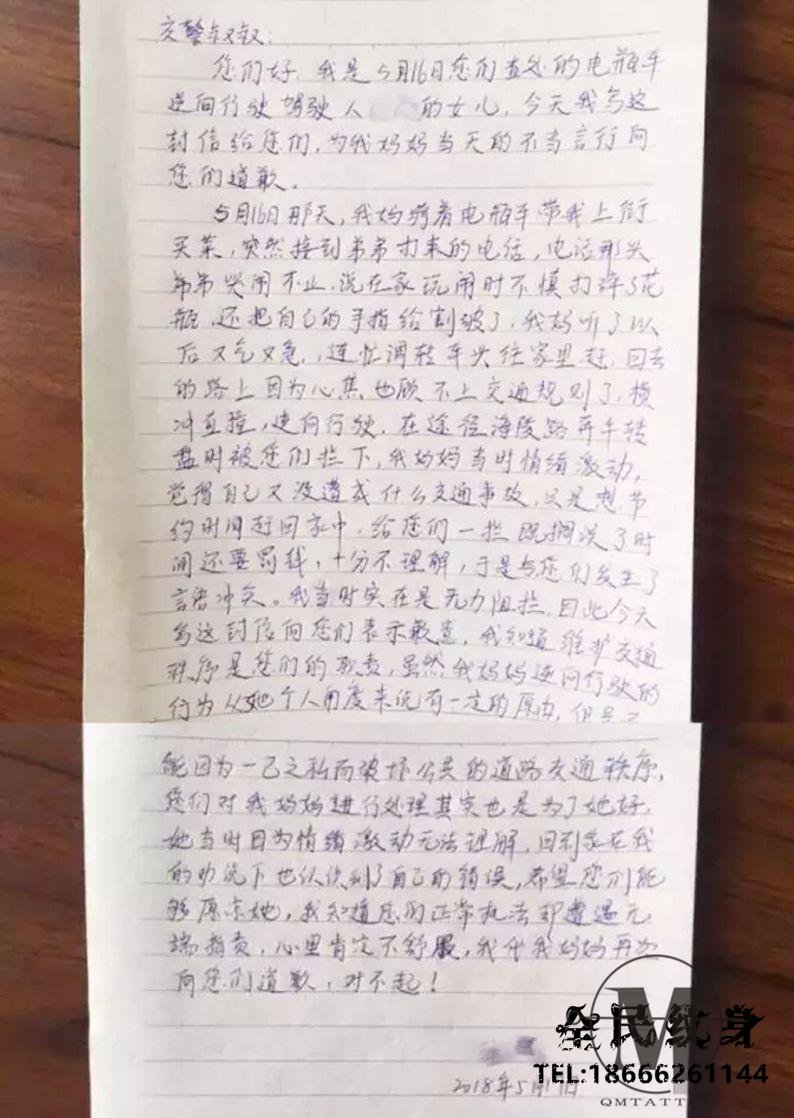 交警叔叔：
您们好，我是5月16日您们查处的电瓶车
逆向行驶驾驶人 的女儿，今天我写这
封信给您们，为我妈妈当天的不当言行向
您们道歉。
5月16日那天，我妈骑着电瓶车带我上街
买菜，突然接到弟弟打来的电话，电话那头
弟弟哭闹不止，说在家玩闹时不慎打碎了花
瓶，还把自己的手指给割破了，我妈听了以
后又气又急，连忙调转车头往家里赶，回去
的路上因为心焦也顾不上交通规则了，横
冲直撞，逆向行驶，在途径海陵路 转
盘时被您们拦下，我妈妈当时情绪激动，
觉得自己又没造成什么交通事故，只是想节
约时间赶回家中，给您们一拦既耽误了时
间还要罚钱，十分不理解，于是与您们发生了
言语冲突。我当时实在是无力阻拦，因此今天
写这封信向您们表示歉意，我知道维护交通
秩序是您们的职责，虽然我妈妈逆向行驶的
行为从她个人角度来说有一定的原由，但是不
能因为一己之私而破坏公共的道路交通秩序，
您们对我妈妈进行处理其实也是为了她好，
她当时因为情绪激动无法理解，回到家在我
的劝说下也认识到了自己的错误，希望您们能
够原谅她，我知道您们正常执法却遭遇无
端指责，心里肯定不舒服，我代我妈妈再次
向您们道歉，对不起！
2018年5月 日
全民纹身
TEL:18666261144
QMTATT